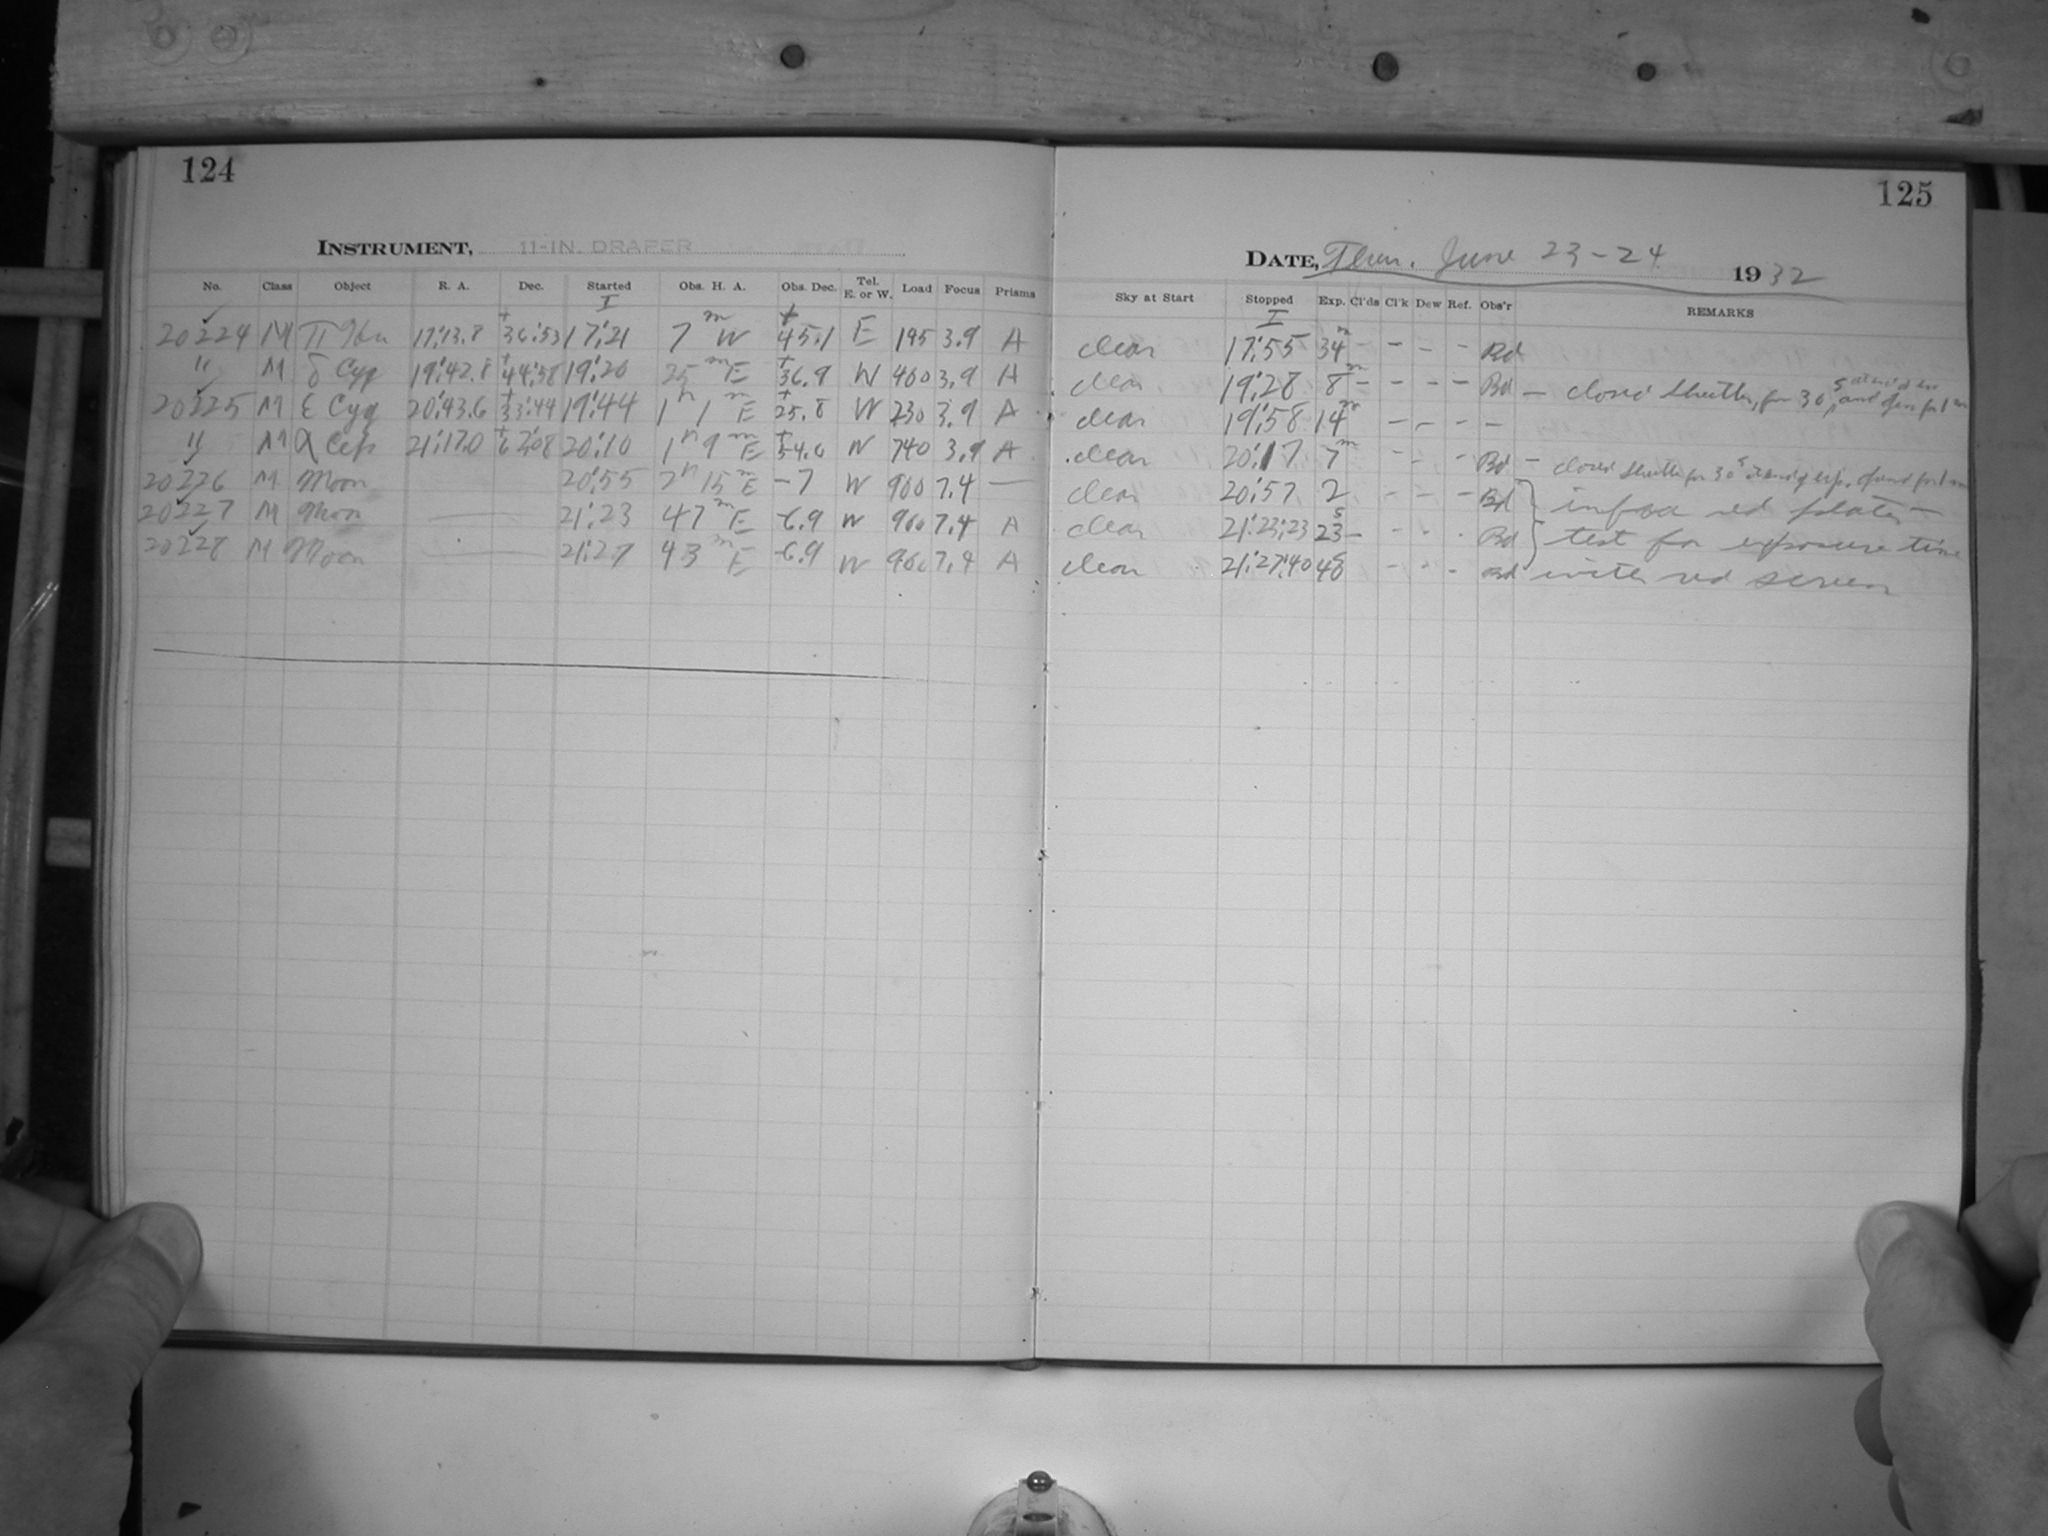 124
125
INSTRUMENT, 11-IN. DRAPER
DATE, Thur. June 23-24 1932
No. Class Object R. A. Dec. Started Obs. H. A. Obs. Dec. Tel. E. or W. Load Focus Prisms Sky at Start Stopped Exp. Cl'ds Cl'k Dew Ref. Obs'r REMARKS
I I
20224 M π Her 17:13.8 +36:53 17:21 7m W +45.1 E 195 3.9 A clear 17:55 34m - - - - Bd
" M δ Cyg 19:42.8 +44:58 19:20 25m E +36.9 W 460 3.9 A clear 19:28 8m - - - - Bd - closed shutter for 30s and open for 1m
20225 M ε Cyg 20:43.6 +33:44 19:44 1h 1m E +25.8 W 230 3.9 A clear 19:58 14m - - - -
" M α Cep 21:17.0 +62:08 20:10 1h 9m E +54.6 W 740 3.9 A clear 20:17 7m - - - Bd - closed shutter for 30s at end of exp.
20226 M Moon 20:55 15m E -7 W 960 7.4 — clear 20:57 2 - - - Bd infra red plate —
20227 M Moon 21:23 47m E -6.9 W 960 7.4 A clear 21:23:23 23s - - - - Bd test for exposure time
20228 M Moon 21:27 43m E -6.9 W 960 7.4 A clear 21:27:40 - - - Bd with red screen